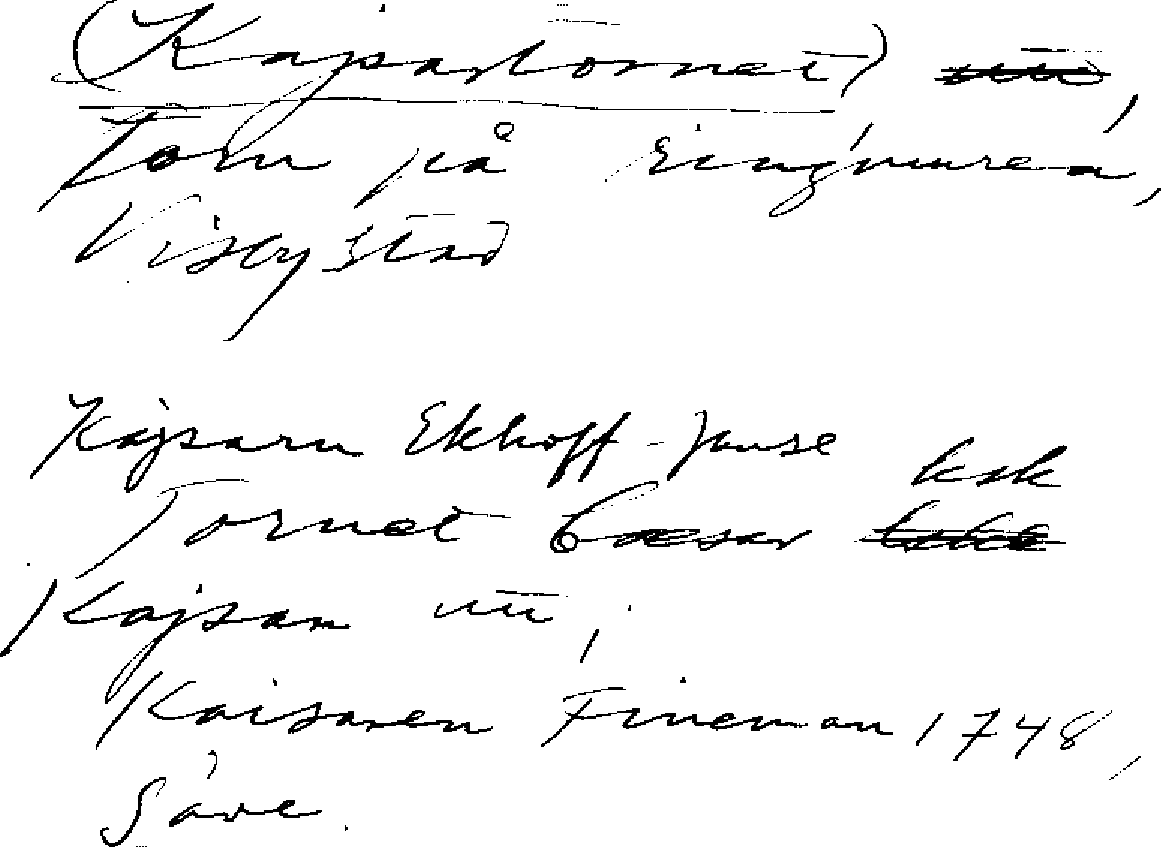 (Kajsartornet)
Torn på Ringmuren,
Visby stad
Kajsarn Ekhoff-Janse
ksk
Tornet Cæsar
Kajsarn uu;
Kaisaren Fineman 1748,
Säve.